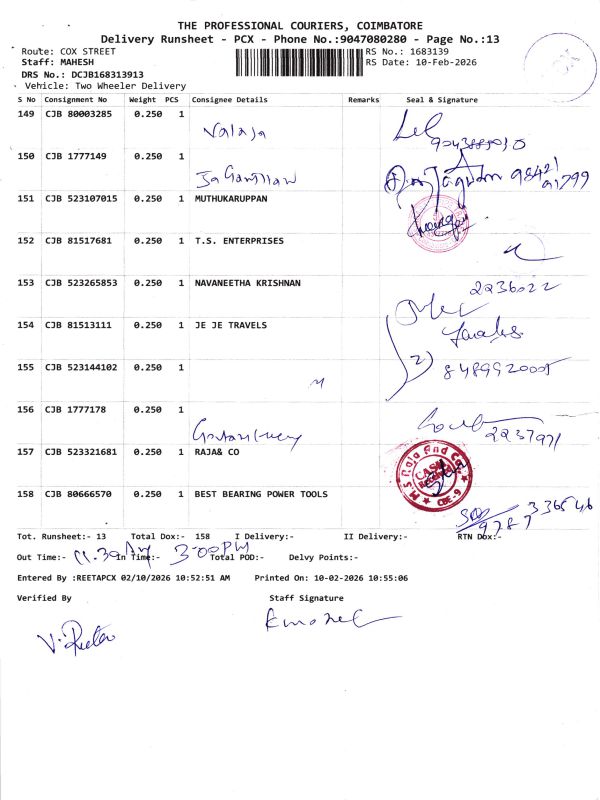 THE PROFESSIONAL COURIERS, COIMBATORE
Delivery Runsheet - PCX - Phone No.:9047080280 - Page No.:13
Route: COX STREET RS No.: 1683139
Staff: MAHESH RS Date: 10-Feb-2026
DRS No.: DCJB168313913
Vehicle: Two Wheeler Delivery
S No Consignment No Weight PCS Consignee Details Remarks Seal & Signature
149 CJB 80003285 0.250 1
150 CJB 1777149 0.250 1
151 CJB 523107015 0.250 1 MUTHUKARUPPAN
152 CJB 81517681 0.250 1 T.S. ENTERPRISES
153 CJB 523265853 0.250 1 NAVANEETHA KRISHNAN
2236022
154 CJB 81513111 0.250 1 JE JE TRAVELS
155 CJB 523144102 0.250 1
156 CJB 1777178 0.250 1
157 CJB 523321681 0.250 1 RAJA& CO
158 CJB 80666570 0.250 1 BEST BEARING POWER TOOLS
Tot. Runsheet:- 13 Total Dox:- 158 I Delivery:- II Delivery:- RTN Dox:-
Out Time:- 11.30 In Time:- 3:00PM Total POD:- Delvy Points:-
Entered By :REETAPCX 02/10/2026 10:52:51 AM Printed On: 10-02-2026 10:55:06
Verified By Staff Signature